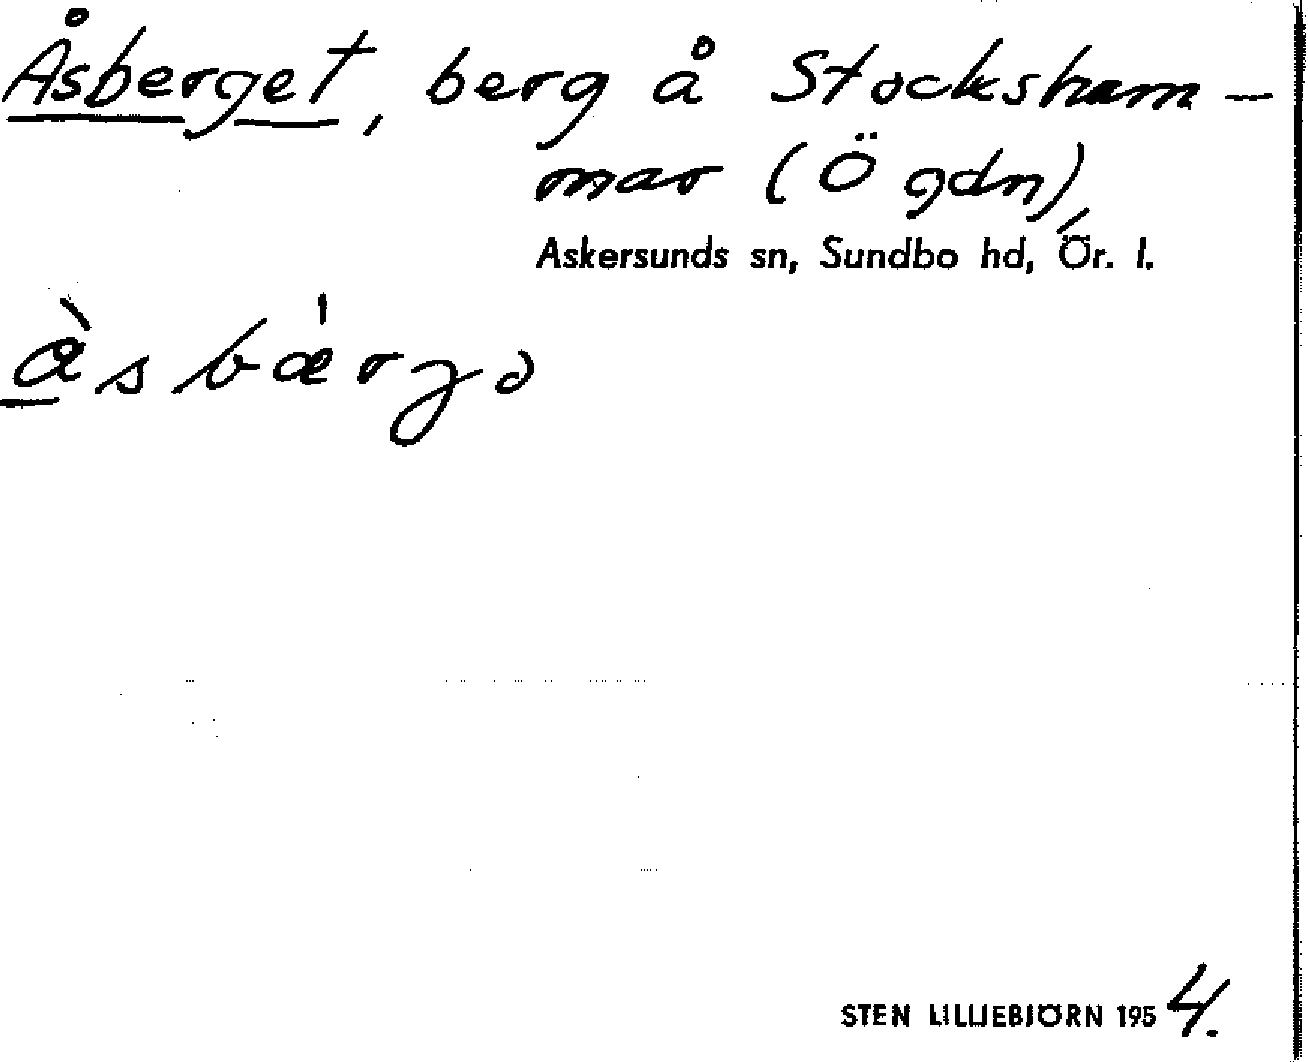 Åsberget, berg å Stocksham-
mar (Ö gdn),
Askersunds sn, Sundbo hd, Ör. l.
STEN LILLIEBJÖRN 1954.